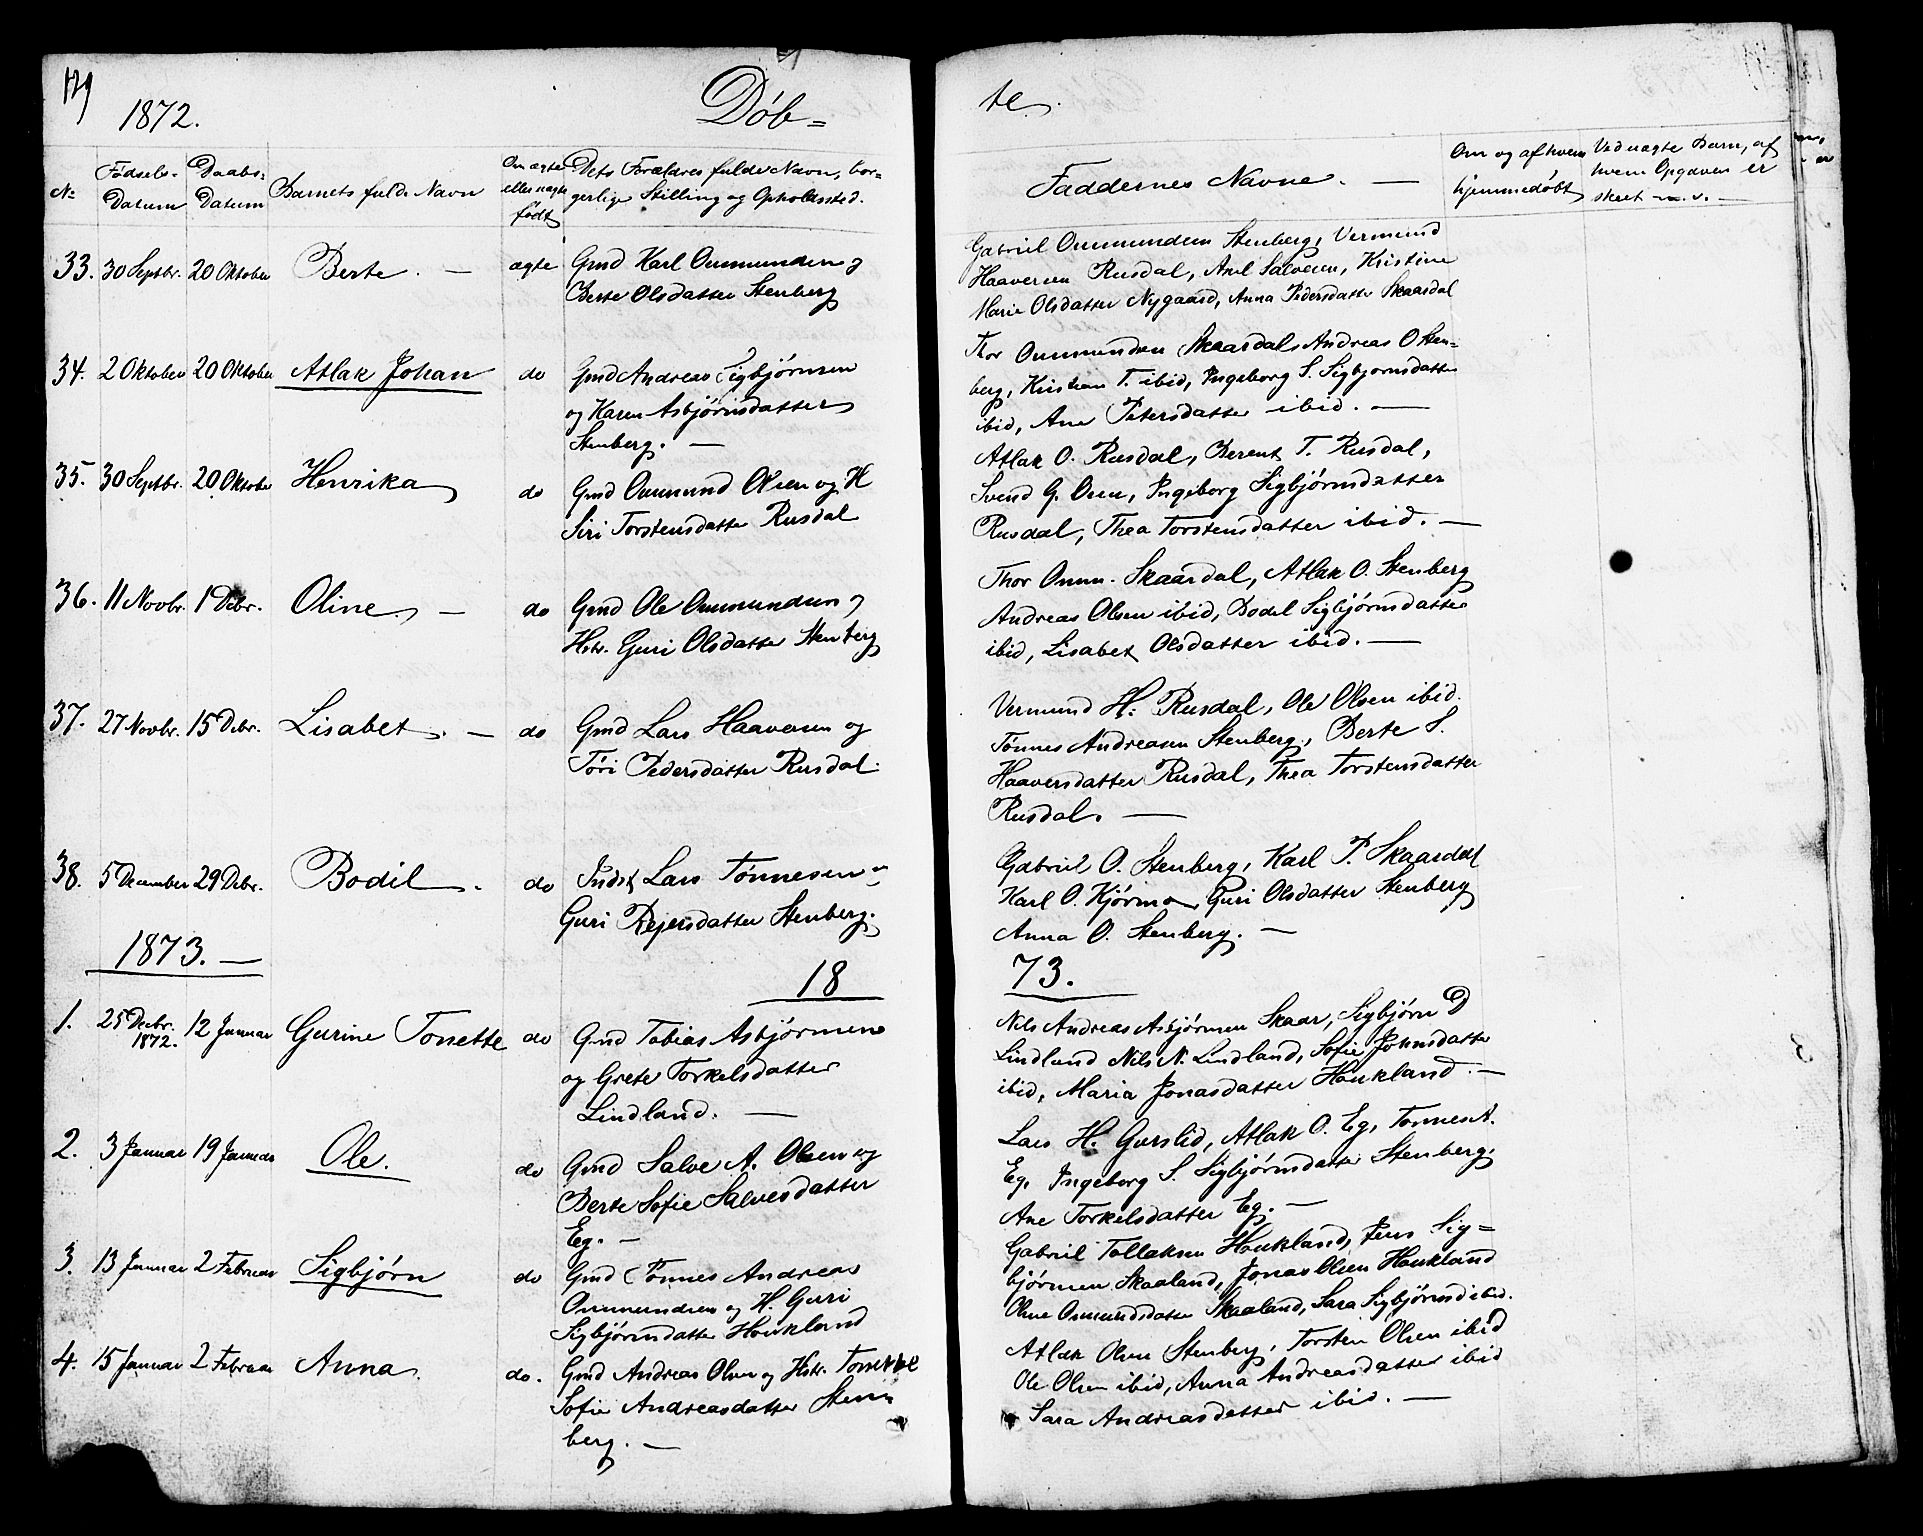 1872.
Döb=
te.
No
Fødsels-
Datum
Daabs-
Datum
Barnets fulde Navn
Om ægte
eller uægte
født
Dets Forældres fulde Navn, bor=
gerlige Stilling og Opholdssted.
Faddernes Navne. —
Om og af hvem
hjemmedøbt
Ved uægte Barn, af
hvem Opgaven er
skeet m. v. —
33. 30 Septbr. 20 Oktober Berte. — ægte
Gmd Karl Ommundsen og
Berte Olsdatter Stenberg
Gabriel Ommundsen Stenberg, Vermund
Haaversen Rusdal, Axel Salvesen, Kristine
Marie Olsdatter Nygaard, Anna Pedersdatter Skaardal
34. 2 Oktober 20 Oktober Atlak Johan do
Gmd Andreas Sigbjørnsen
og Karen Asbjørnsdatter
Stenberg. —
Thor Ommundsen Skaardal, Andreas O Sten=
berg, Kristian T. ibid, Ingeborg S. Sigbjørnsdatter
ibid, Ane Petersdatter ibid. —
35. 30 Septbr. 20 Oktober Henrika do
Gmd Ommund Olsen og H
Siri Torstensdatter Rusdal
Atlak O. Rusdal, Berent T. Rusdal,
Svend G. Osen, Ingeborg Sigbjørnsdatter
Rusdal, Thea Torstensdatter ibid. —
36. 11 Novbr. 1 Debr. Oline. — do
Gmd Ole Ommundsen og
Hstr. Guri Olsdatter Stenberg
Thor Omm. Skaardal, Atlak O. Stenberg
Andreas Olsen ibid, Bodel Sigbjørnsdatter
ibid, Lisabet Olsdatter ibid. —
37. 27 Novbr. 15 Debr. Lisabet. — do
Gmd Lars Haaversen og
Töri Pedersdatter Rusdal.
Vermund H. Rusdal, Ole Olsen ibid.
Tønnes Andreasen Stenberg, Berte S.
Haaversdatter Rusdal, Thea Torstensdatter
Rusdal. —
38. 5 December 29 Debr. Bodil. do
Indst Lars Tønnesen og
Guri Rejersdatter Stenberg.
Gabriel O. Stenberg, Karl P. Skaardal
Karl O. Kjørmo, Guri Olsdatter Stenberg
Anna O. Stenberg. —
1873. —
18
73.
1. 25 Decbr. 1872. 12 Januar Gurine Tonette do
Gmd Tobias Asbjørnsen
og Grete Torkelsdatter
Lindland. —
Nils Andreas Asbjørnsen Skaar, Sigbjørn D
Lindland Nils N. Lindland, Sofie Johnsdatter
ibid, Maria Jonasdatter Houkland. —
2. 3 Januar 19 Januar Ole. do
Gmd Salve A. Olsen og
Berte Sofie Salvesdatter
Eg. —
Lars H. Gurslid, Atlak O. Eg, Tonnes A.
Eg, Ingeborg S. Sigbjørnsdatter Stenberg.
Ane Torkelsdatter Eg. —
3. 13 Januar 2 Februar Sigbjørn do
Gmd Tønnes Andreas
Ommundsen og H. Guri
Sigbjørnsdatter Houkland
Gabriel Tollaksen Houkland, Jens Sig=
bjørnsen Skaaland, Jonas Olsen Houkland
Oline Ommundsdatter Skaaland, Sara Sigbjørnsd ibid.
4. 15 Januar 2 Februar Anna. do.
Gmd Andreas Olsen og Hstr. Tonette
Sofie Andreasdatter Sten
berg. —
Atlak Olsen Stenberg, Torsten Olsen ibid
Ole Olsen ibid, Anna Andreasdatter ibid
Sara Andreasdatter ibid. —